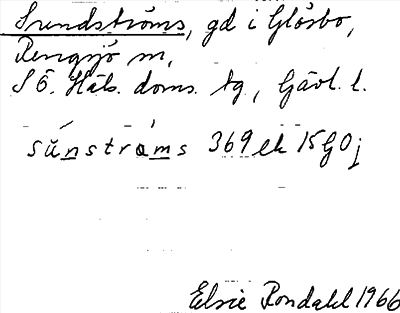 Sundströms, gd i Glösbo,
Rengsjö sn,
S Ö. Häls. doms. tg, Gävl. l.
súnstrám̀s 369 ek 15G0j
Elsie Rondahl 1966